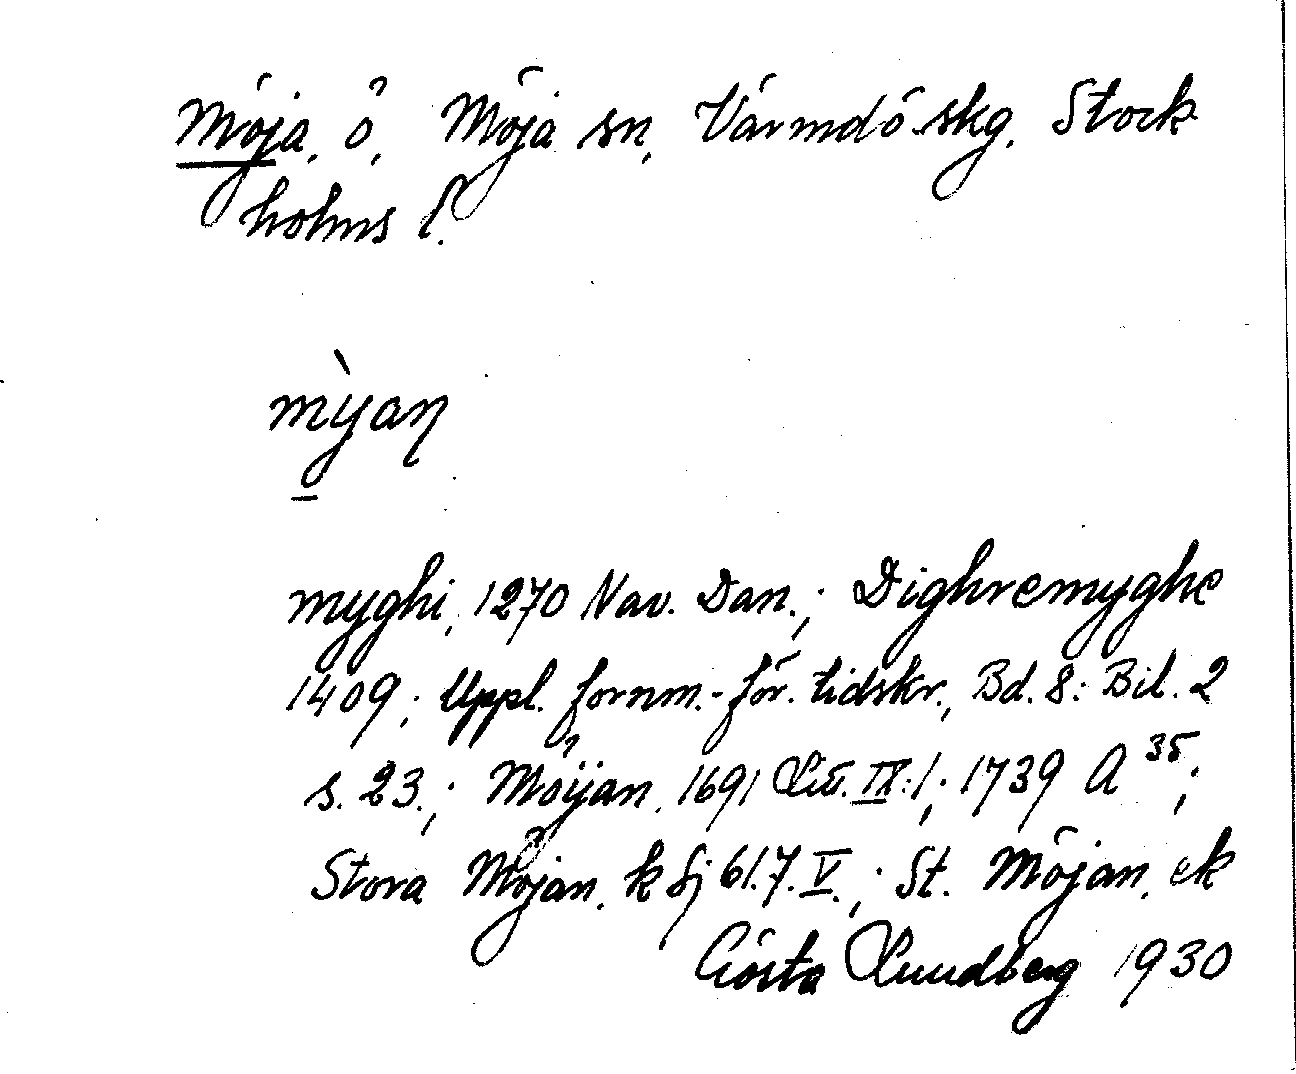 Möja, ö, Möja sn, Värmdö skg, Stock
holms l.
mỳaŋ
myghi, 1270 Nav. Dan.; Dighremyghe
1409; Uppl. fornm.-för. tidskr., Bd. 8: Bil. 2
s. 23.; Möÿan, 1691 Lit. IX:1; 1739 A 35;
Stora Möjan, k Sj 617. V.; St. Möjan, ek
Gösta Lundberg 1930